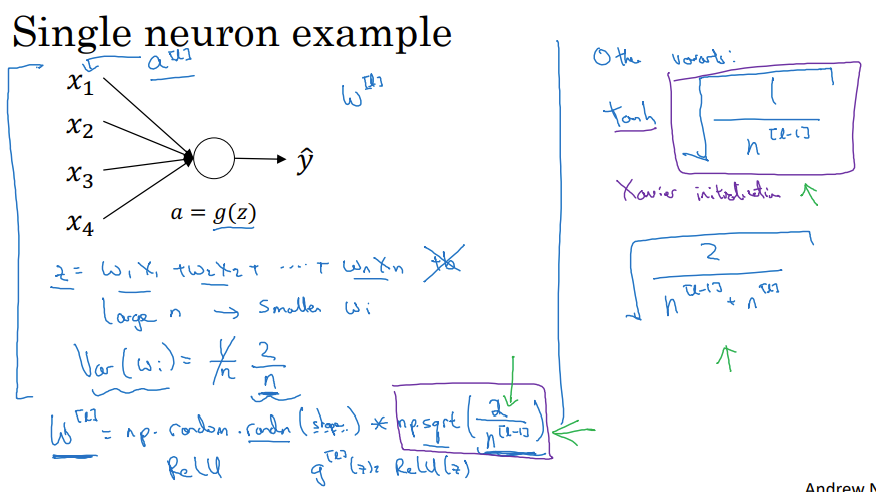 Single neuron example
a^[l]
x₁
x₂
x₃
x₄
w^[l]
ŷ
a = g(z)
z = w₁x₁ + w₂x₂ + ..... + wₙxₙ +b
Large n → Smaller wᵢ
Var(wᵢ) = 1/n 2/n
W^[l] = np.random.randn(shape) * np.sqrt(2/n^[l-1])
ReLU g^[l](z) = ReLU(z)
Other variants:
tanh √(1/n^[l-1])
Xavier initialization
√(2/(n^[l-1] + n^[l]))
Andrew N